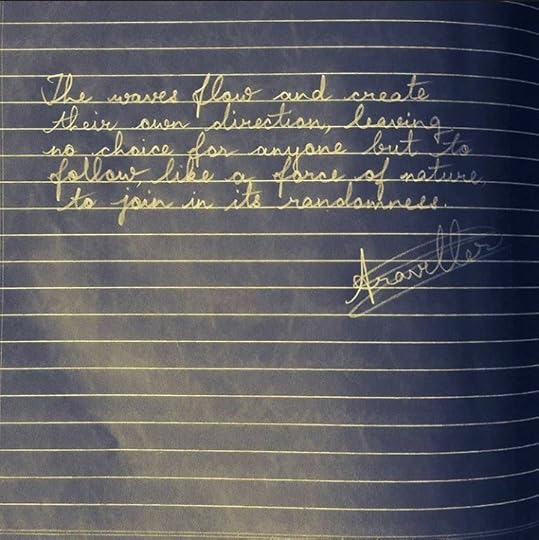 The waves flow and create
their own direction, leaving
no choice for anyone but to
follow, like a force of nature,
to join in its randomness.
Aravetter